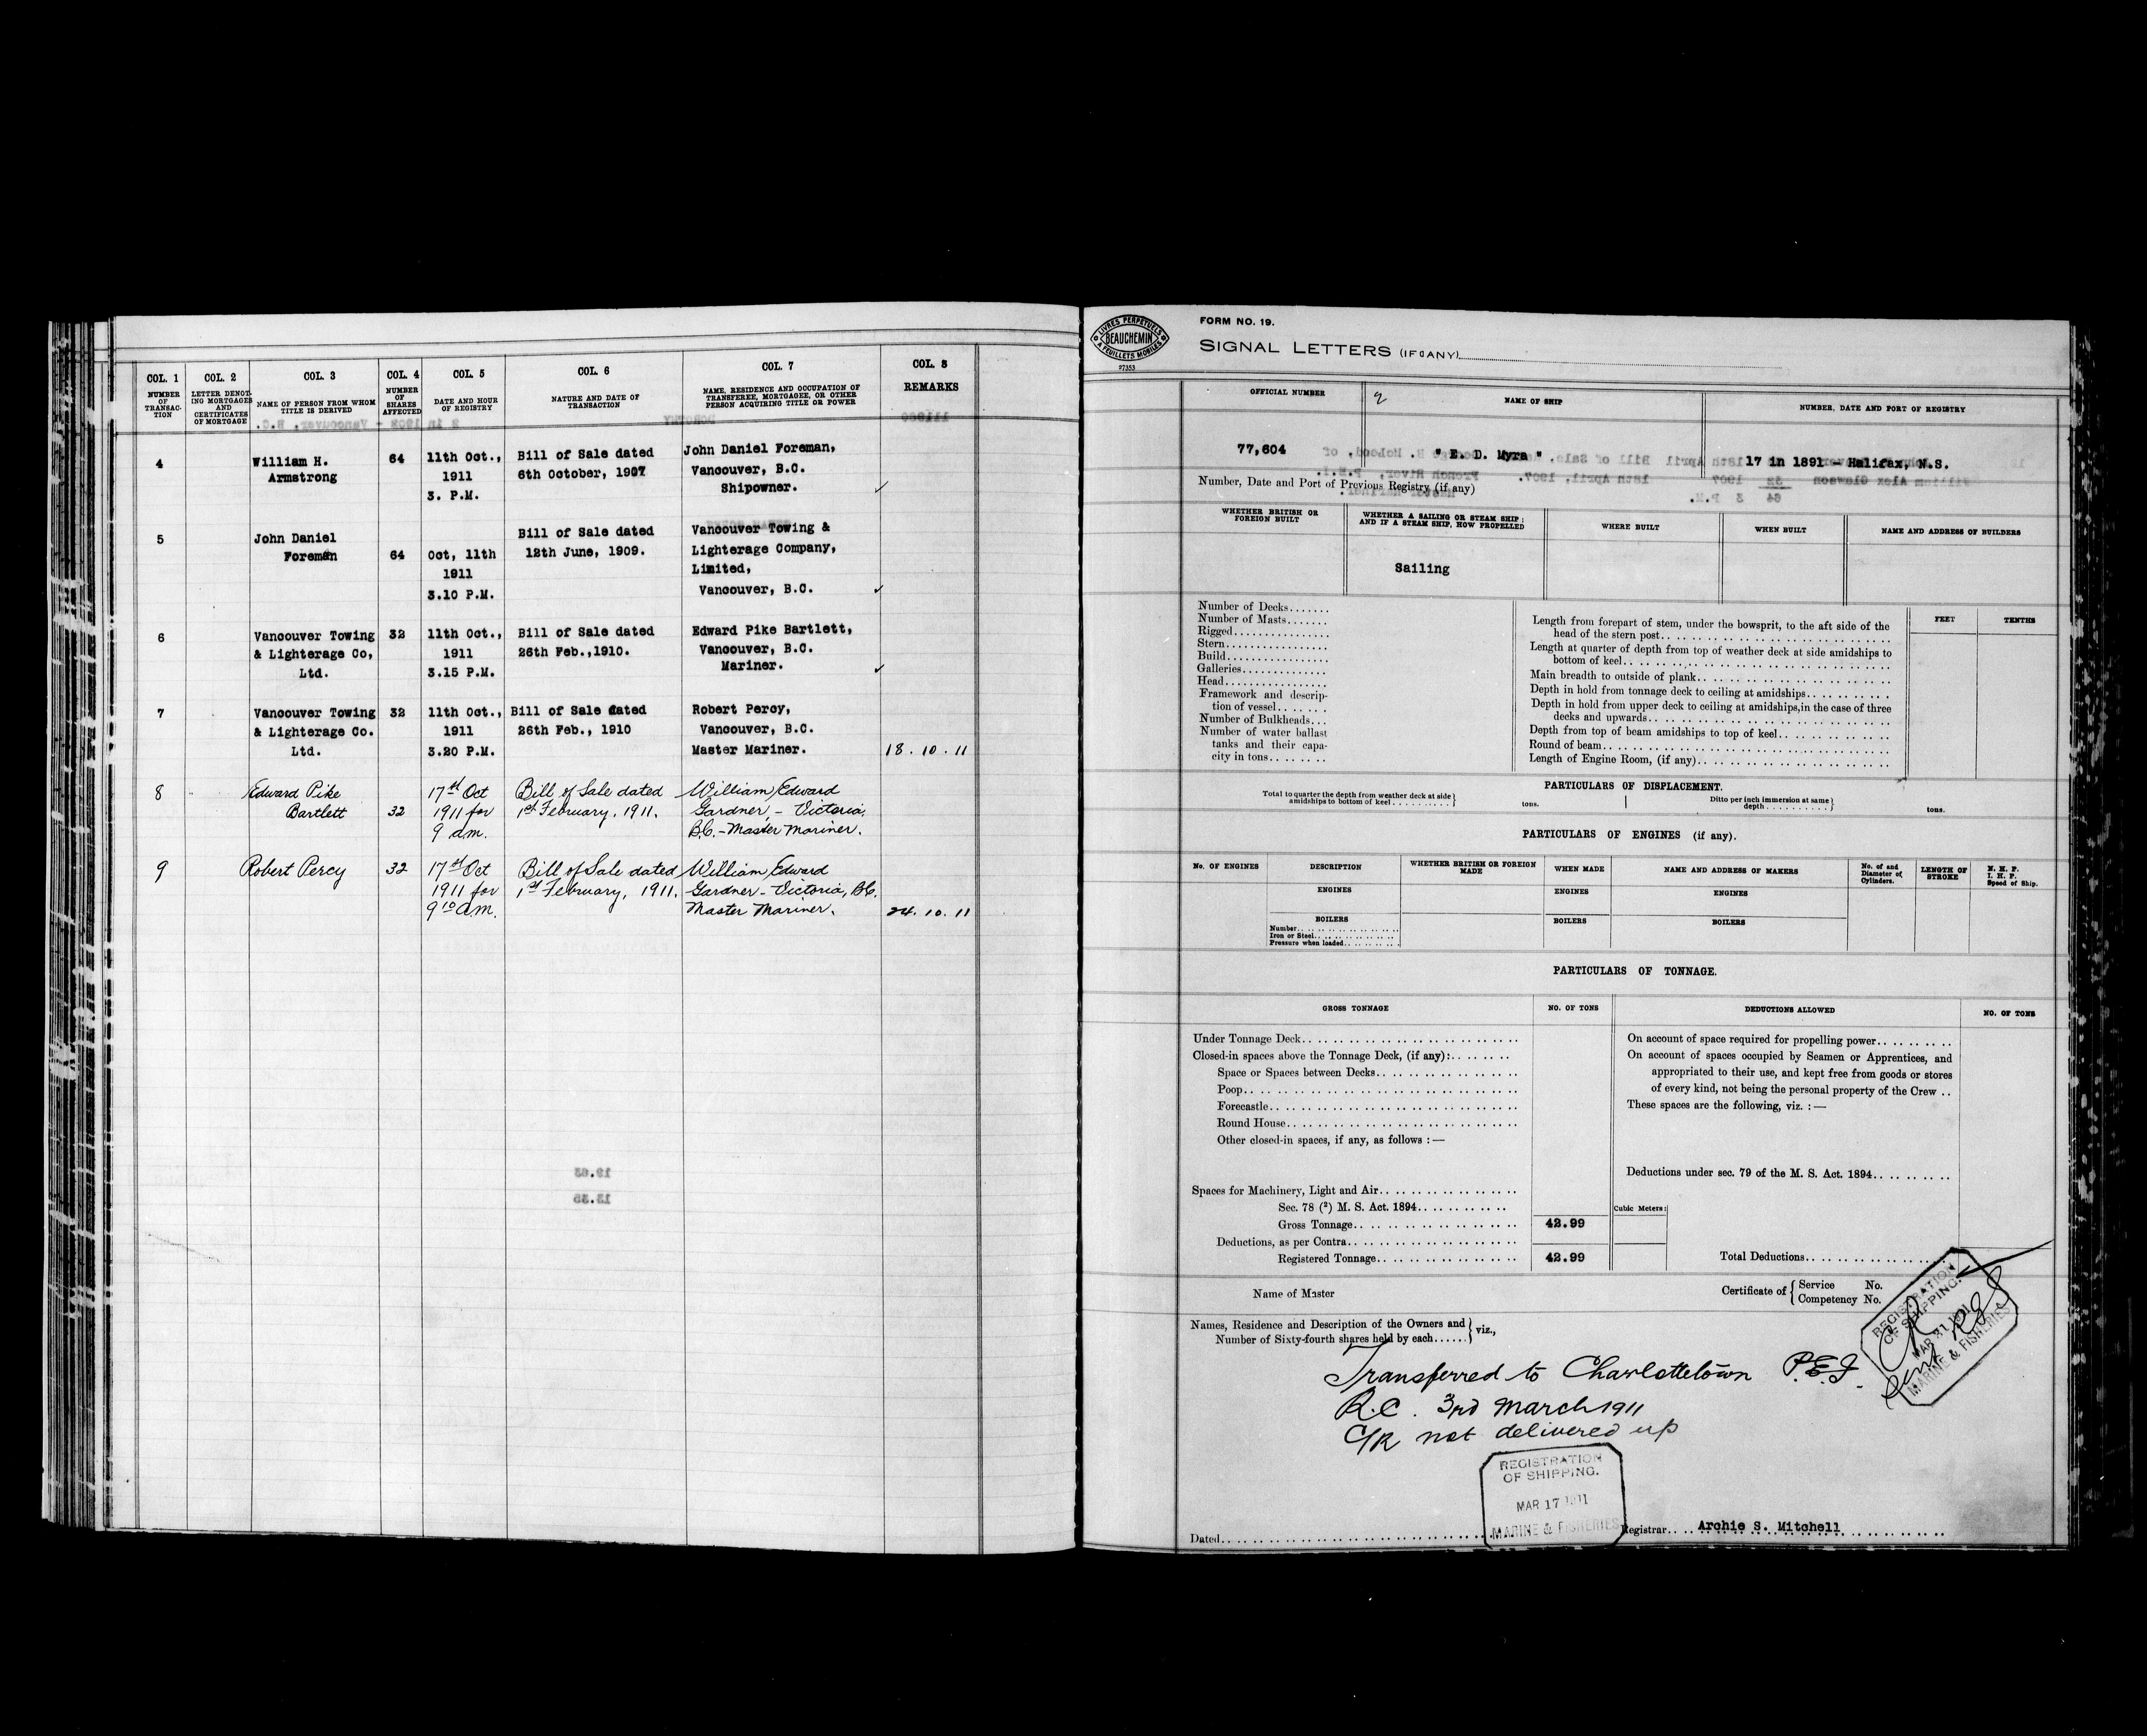 COL. 1
NUMBER OF TRANSAC-TION
COL. 2
LETTER DENOT-ING MORTGAGES AND CERTIFICATES OF MORTGAGE
COL. 3
NAME OF PERSON FROM WHOM TITLE IS DERIVED
COL. 4
NUMBER OF SHARES AFFECTED
COL. 5
DATE AND HOUR OF REGISTRY
COL. 6
NATURE AND DATE OF TRANSACTION
COL. 7
NAME, RESIDENCE AND OCCUPATION OF TRANSFEREE, MORTGAGEE, OR OTHER PERSON ACQUIRING TITLE OR POWER
COL. 8
REMARKS
4 William H. 64 11th Oct., Bill of Sale dated John Daniel Foreman,
Armstrong 1911 6th October, 1907 Vancouver, B.C.
3. P.M. Shipowner.
5 John Daniel Bill of Sale dated Vancouver Towing &
Foreman 64 Oct, 11th 12th June, 1909. Lighterage Company,
1911 Limited,
3.10 P.M. Vancouver, B.C.
6 Vancouver Towing 32 11th Oct., Bill of Sale dated Edward Pike Bartlett,
& Lighterage Co, 1911 26th Feb.,1910. Vancouver, B.C.
Ltd. 3.15 P.M. Mariner.
7 Vancouver Towing 32 11th Oct., Bill of Sale dated Robert Percy,
& Lighterage Co. 1911 26th Feb., 1910 Vancouver, B.C.
Ltd. 3.20 P.M. Master Mariner. 18.10.11
8 Edward Pike 17th Oct Bill of Sale dated William Edward
Bartlett 32 1911 for 1st February, 1911. Gardner, - Victoria,
9 am. B.C. - Master Mariner.
9 Robert Percy 32 17th Oct Bill of Sale dated William Edward
1911 for 1st February, 1911. Gardner - Victoria, B.C.
9 10 am. Master Mariner. 24.10.11
LIVRES PERPETUELS
BEAUCHEMIN
A FEUILLETS MOBILES
27353
FORM NO. 19.
SIGNAL LETTERS (IF ANY)
OFFICIAL NUMBER
2
NAME OF SHIP
NUMBER, DATE AND PORT OF REGISTRY
77,604 " E. D. Myra " 17 in 1891 - Halifax, N.S.
Number, Date and Port of Previous Registry (if any)
WHETHER BRITISH OR FOREIGN BUILT
WHETHER A SAILING OR STEAM SHIP; AND IF A STEAM SHIP, HOW PROPELLED
WHERE BUILT
WHEN BUILT
NAME AND ADDRESS OF BUILDERS
Sailing
Number of Decks
Number of Masts
Rigged
Stern
Build
Galleries
Head
Framework and descrip-
tion of vessel
Number of Bulkheads
Number of water ballast
tanks and their capa-
city in tons
FEET TENTHS
Length from forepart of stem, under the bowsprit, to the aft side of the
head of the stern post
Length at quarter of depth from top of weather deck at side amidships to
bottom of keel
Main breadth to outside of plank
Depth in hold from tonnage deck to ceiling at amidships
Depth in hold from upper deck to ceiling at amidships, in the case of three
decks and upwards
Depth from top of beam amidships to top of keel
Round of beam
Length of Engine Room, (if any)
PARTICULARS OF DISPLACEMENT.
Total to quarter the depth from weather deck at side
amidships to bottom of keel tons.
Ditto per inch immersion at same
depth tons.
PARTICULARS OF ENGINES (if any).
No. OF ENGINES
DESCRIPTION
WHETHER BRITISH OR FOREIGN MADE
WHEN MADE
NAME AND ADDRESS OF MAKERS
No. of and Diameter of Cylinders.
LENGTH OF STROKE
N. H. P.
I. H. P.
Speed of Ship.
ENGINES ENGINES ENGINES
BOILERS BOILERS BOILERS
Number
Iron or Steel
Pressure when loaded
PARTICULARS OF TONNAGE.
GROSS TONNAGE NO. OF TONS DEDUCTIONS ALLOWED NO. OF TONS
Under Tonnage Deck
Closed-in spaces above the Tonnage Deck, (if any):
Space or Spaces between Decks
Poop
Forecastle
Round House
Other closed-in spaces, if any, as follows : —
Spaces for Machinery, Light and Air
Sec. 78 (2) M. S. Act. 1894
Gross Tonnage 42.99
Deductions, as per Contra
Registered Tonnage 42.99
On account of space required for propelling power
On account of spaces occupied by Seamen or Apprentices, and
appropriated to their use, and kept free from goods or stores
of every kind, not being the personal property of the Crew
These spaces are the following, viz. : —
Deductions under sec. 79 of the M. S. Act. 1894
Cubic Meters:
Total Deductions
Name of Master
Certificate of { Service No.
Competency No.
Names, Residence and Description of the Owners and
Number of Sixty-fourth shares held by each } viz.,
REGISTRATION
OF SHIPPING.
MAR 21 1911
MARINE & FISHERIES
Transferred to Charlottetown P.E.I.
R.C. 3rd March 1911
C/R not delivered up
REGISTRATION
OF SHIPPING.
MAR 17 1911
MARINE & FISHERIES
Dated
Registrar Archie S. Mitchell